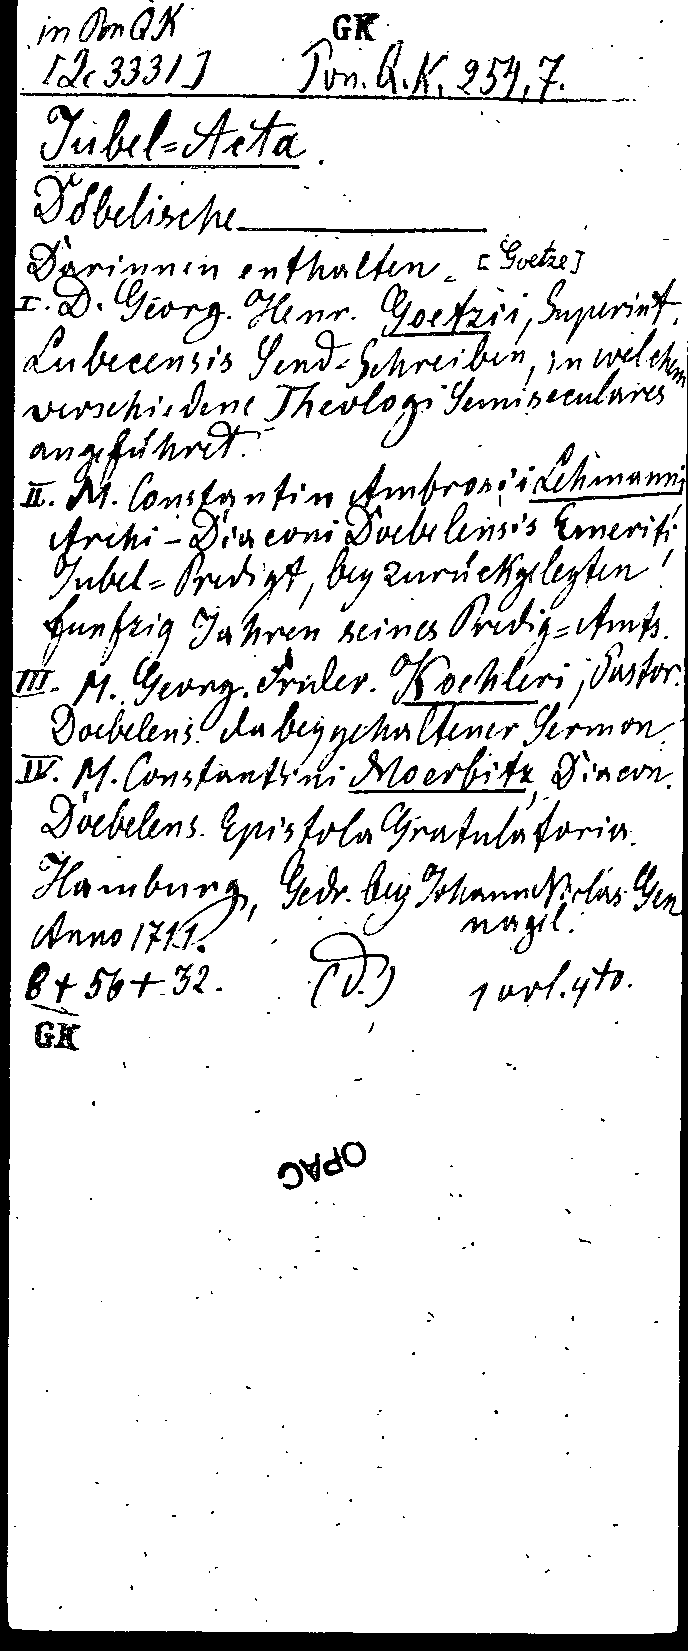 in Pon QK
GK
[Zc 3331]
Pon. Q. K. 254,7.
Jubel=Acta.
Döbelische
Darinnen enthalten. [Goetze]
I. D. Georg. Henr. Goetzii, Superint.
Lubecensis Send=Schreiben, in welchem
verschiedene Theologi Semiseculares
angeführet.
II. M. Constantin Ambrosii Lehmanni
Archi-Diaconi Doebelensis Emeriti,
Jubel=Predigt, bey zurückgelegten
funfzig Jahren seines Predig=Amts.
III. M. Georg. Frider. Koehleri, Pastor.
Doebelens. dabey gehaltener Sermon.
IV. M. Constantini Moerbitz, Diacon.
Doebelens. Epistola Gratulatoria.
Hamburg, Gedr. bey Johann Niclas Gen
nagel.
Anno 1711.
8 + 56 + 32. (d.) 1 vol. 4to.
GK
OPAC